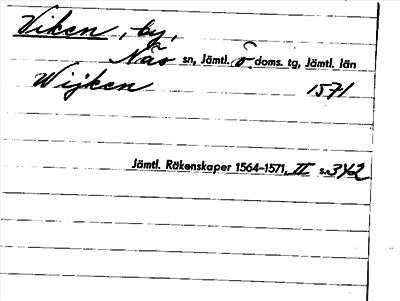 Viken, by,
Näs sn, Jämtl. ö. doms. tg, Jämtl. län
Wijken 1571
Jämtl. Räkenskaper 1564–1571, II s. 342